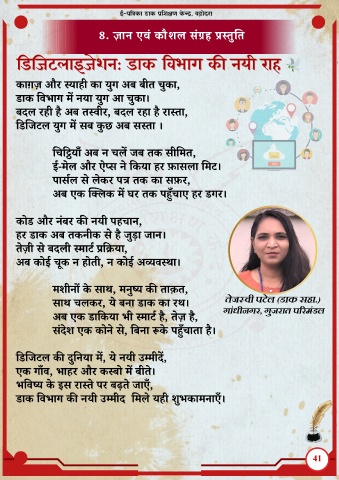 ई-पत्रिका डाक प्रशिक्षण केन्द्र, वड़ोदरा
8. ज्ञान एवं कौशल संग्रह प्रस्तुति
डिजिटलाइज़ेशन: डाक विभाग की नयी राह
काग़ज़ और स्याही का युग अब बीत चुका,
डाक विभाग में नया युग आ चुका।
बदल रही है अब तस्वीर, बदल रहा है रास्ता,
डिजिटल युग में सब कुछ अब सस्ता ।
चिट्ठियाँ अब न चलें जब तक सीमित,
ई-मेल और ऐप्स ने किया हर फ़ासला मिट।
पार्सल से लेकर पत्र तक का सफ़र,
अब एक क्लिक में घर तक पहुँचाए हर डगर।
कोड और नंबर की नयी पहचान,
हर डाक अब तकनीक से है जुड़ा जान।
तेज़ी से बदली स्मार्ट प्रक्रिया,
अब कोई चूक न होती, न कोई अव्यवस्था।
मशीनों के साथ, मनुष्य की ताक़त,
साथ चलकर, ये बना डाक का रथ।
अब एक डाकिया भी स्मार्ट है, तेज़ है,
संदेश एक कोने से, बिना रूके पहुँचाता है।
तेजस्वी पटेल (डाक सहा.)
गांधीनगर, गुजरात परिमंडल
डिजिटल की दुनिया में, ये नयी उम्मीदें,
एक गाँव, भाहर और कस्बो में बीते।
भविष्य के इस रास्ते पर बढ़ते जाएँ,
डाक विभाग की नयी उम्मीद मिले यही शुभकामनाएँ।
41